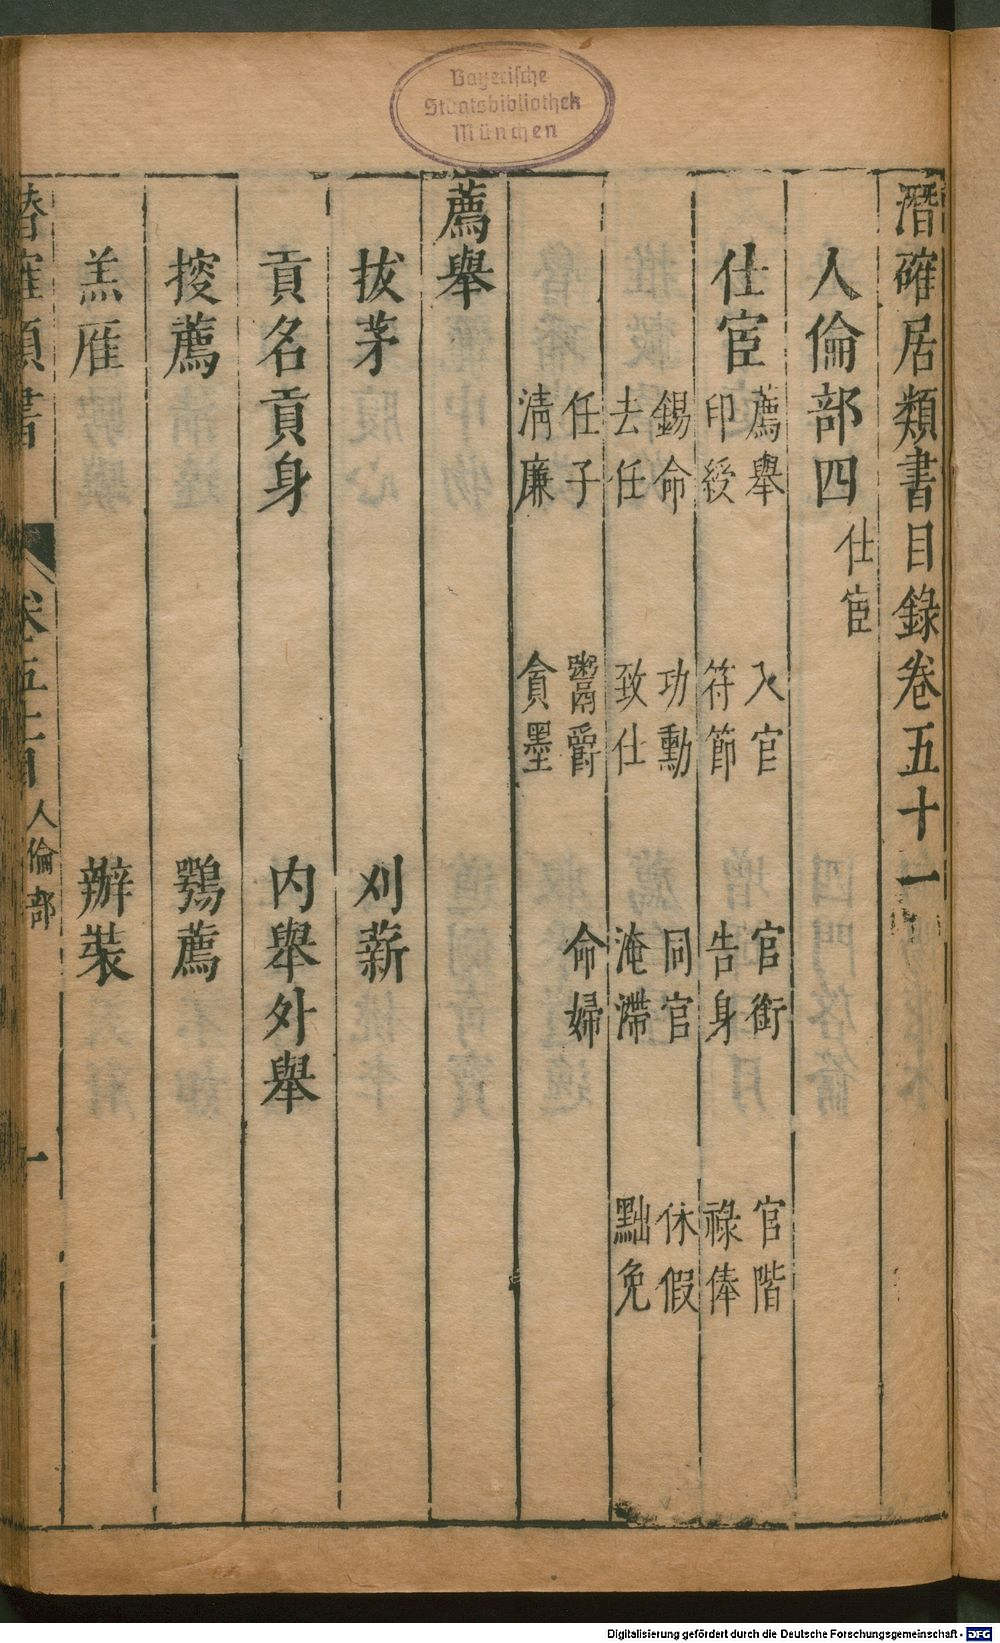 潛確居類書目錄卷五十一
人倫部四 仕宦
仕宦 薦舉 入官 官銜 官階
印綬 符節 告身 祿俸
錫命 功勳 同官 休假
去任 致仕 淹滯 黜免
任子 鬻爵 命婦
清廉 貪墨
薦舉
拔茅 刈薪
貢名貢身 內舉外舉
薦 鶚薦
羔雁 辦裝
潛確類書 卷五十一目 人倫部 一
Bayerische
Staatsbibliothek
München
Digitalisierung gefördert durch die Deutsche Forschungsgemeinschaft - DFG